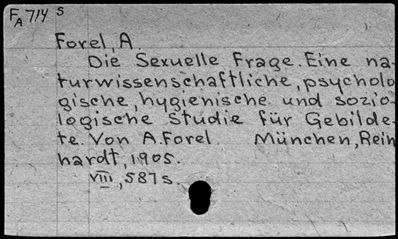 FA 714 s
Forel, A
Die Sexuelle Frage. Eine na-
turwissenschaftliche, psycholo
gische, hygienische und sozio-
logische Studie für Gebilde-
te. Von A. Forel. München, Rein
hardt, 1905.
VIII, 587 s.